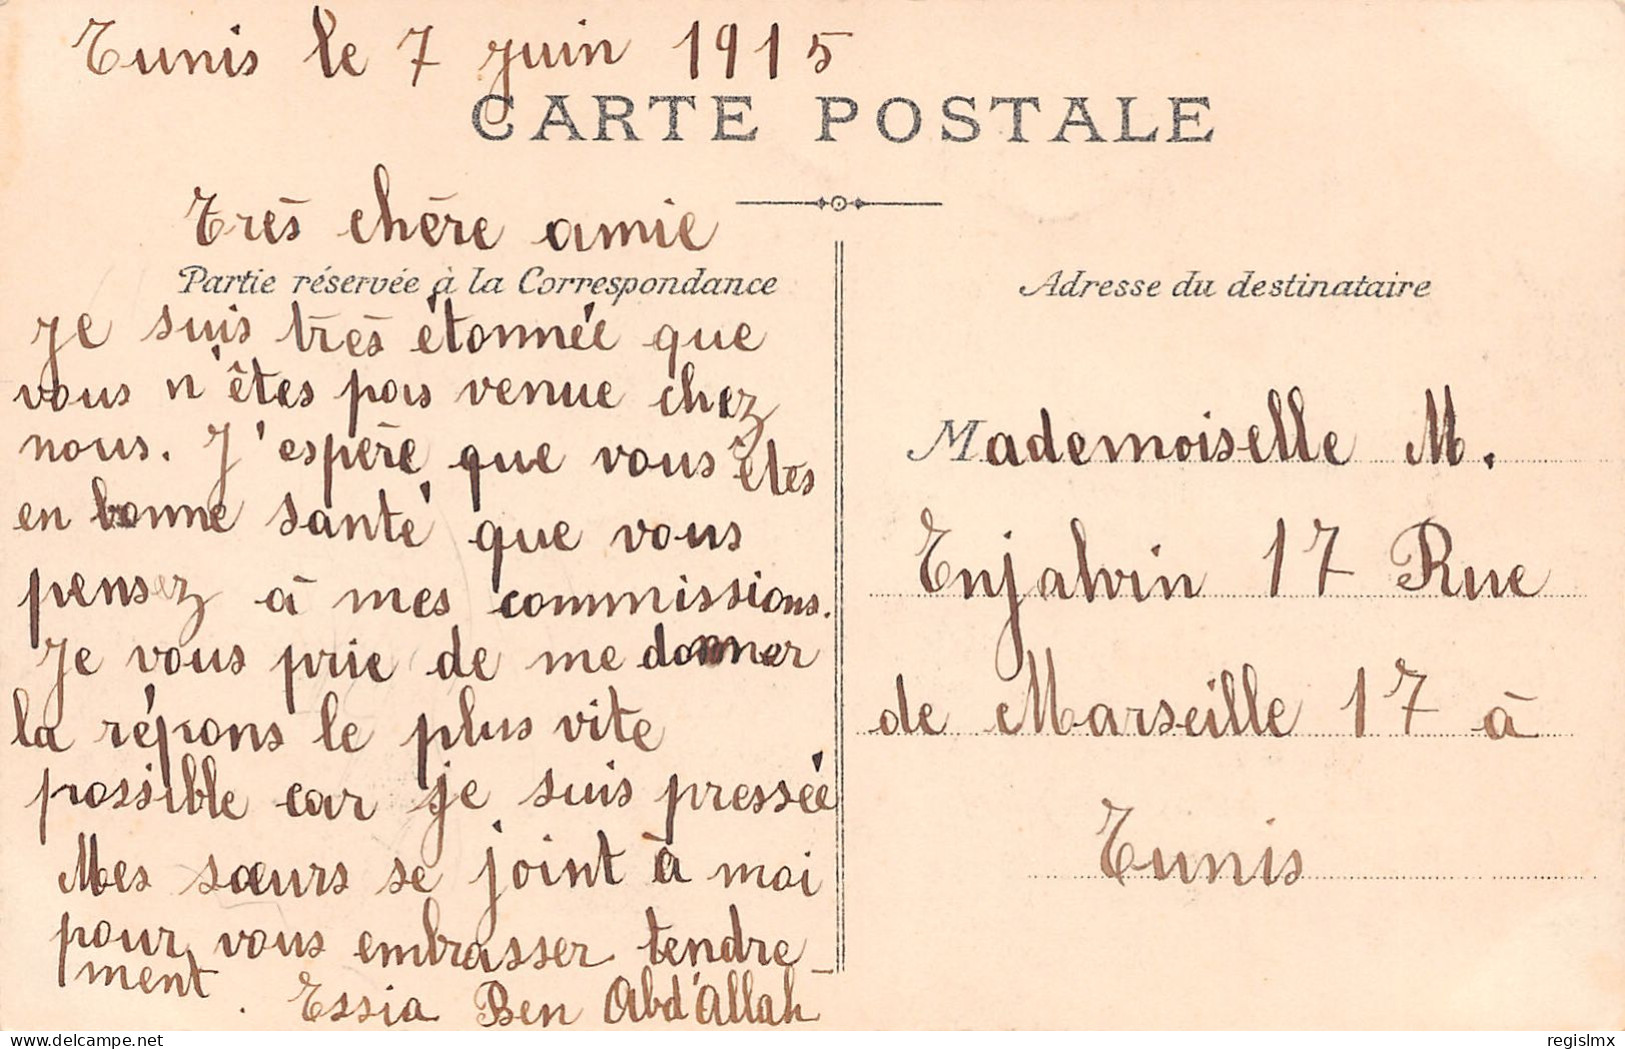 Tunis le 7 juin 1915
CARTE POSTALE
Très chère amie
Partie réservée à la Correspondance
Je suis très étonnée que
vous n'êtes pas venue chez
nous. J'espère que vous êtes
en bonne santé que vous
pensez à mes commissions.
Je vous prie de me donner
la répons le plus vite
possible car je suis pressée
Mes sœurs se joint à moi
pour vous embrasser tendre-
ment.
Essia Ben Abd'Allah
Adresse du destinataire
Mademoiselle M.
Enjalvin 17 Rue
de Marseille 17 à
Tunis
delcampe.net
regislmx